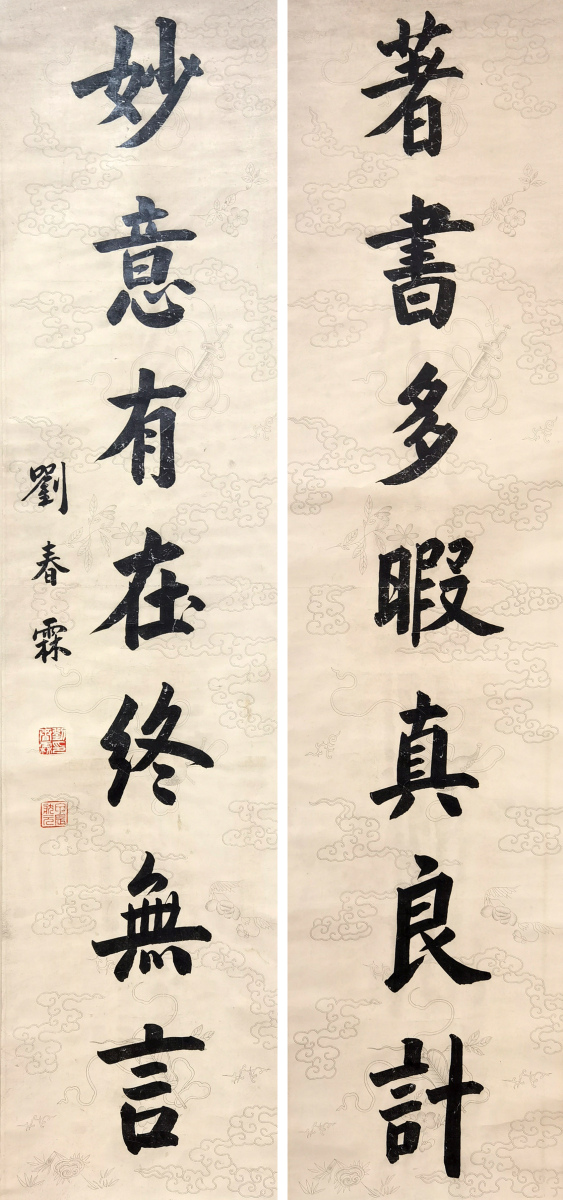 著書多暇真良計
妙意有在終無言
劉春霖